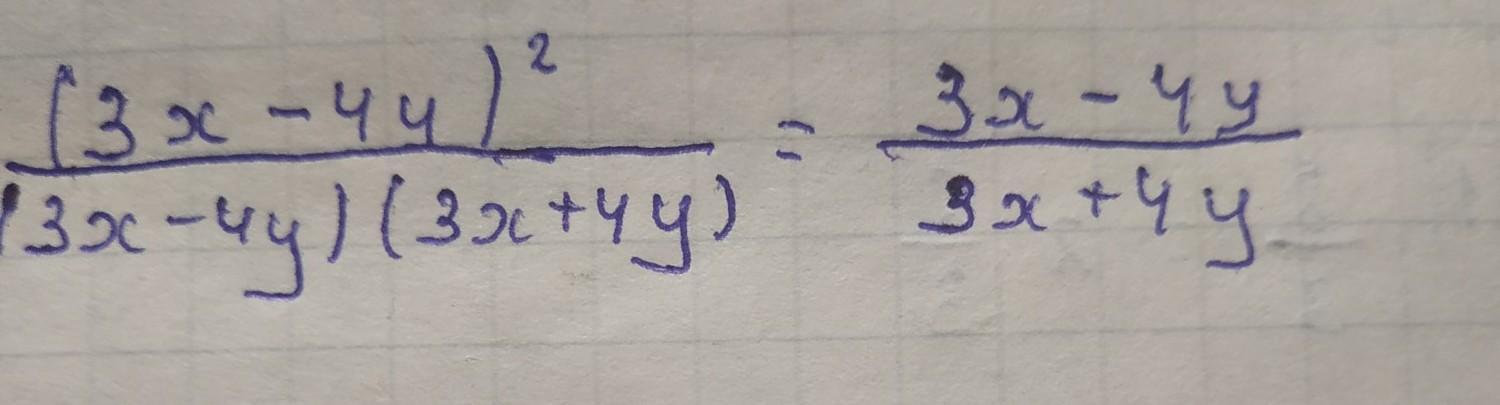 (3x - 4y)² / (3x - 4y)(3x + 4y) = 3x - 4y / 3x + 4y